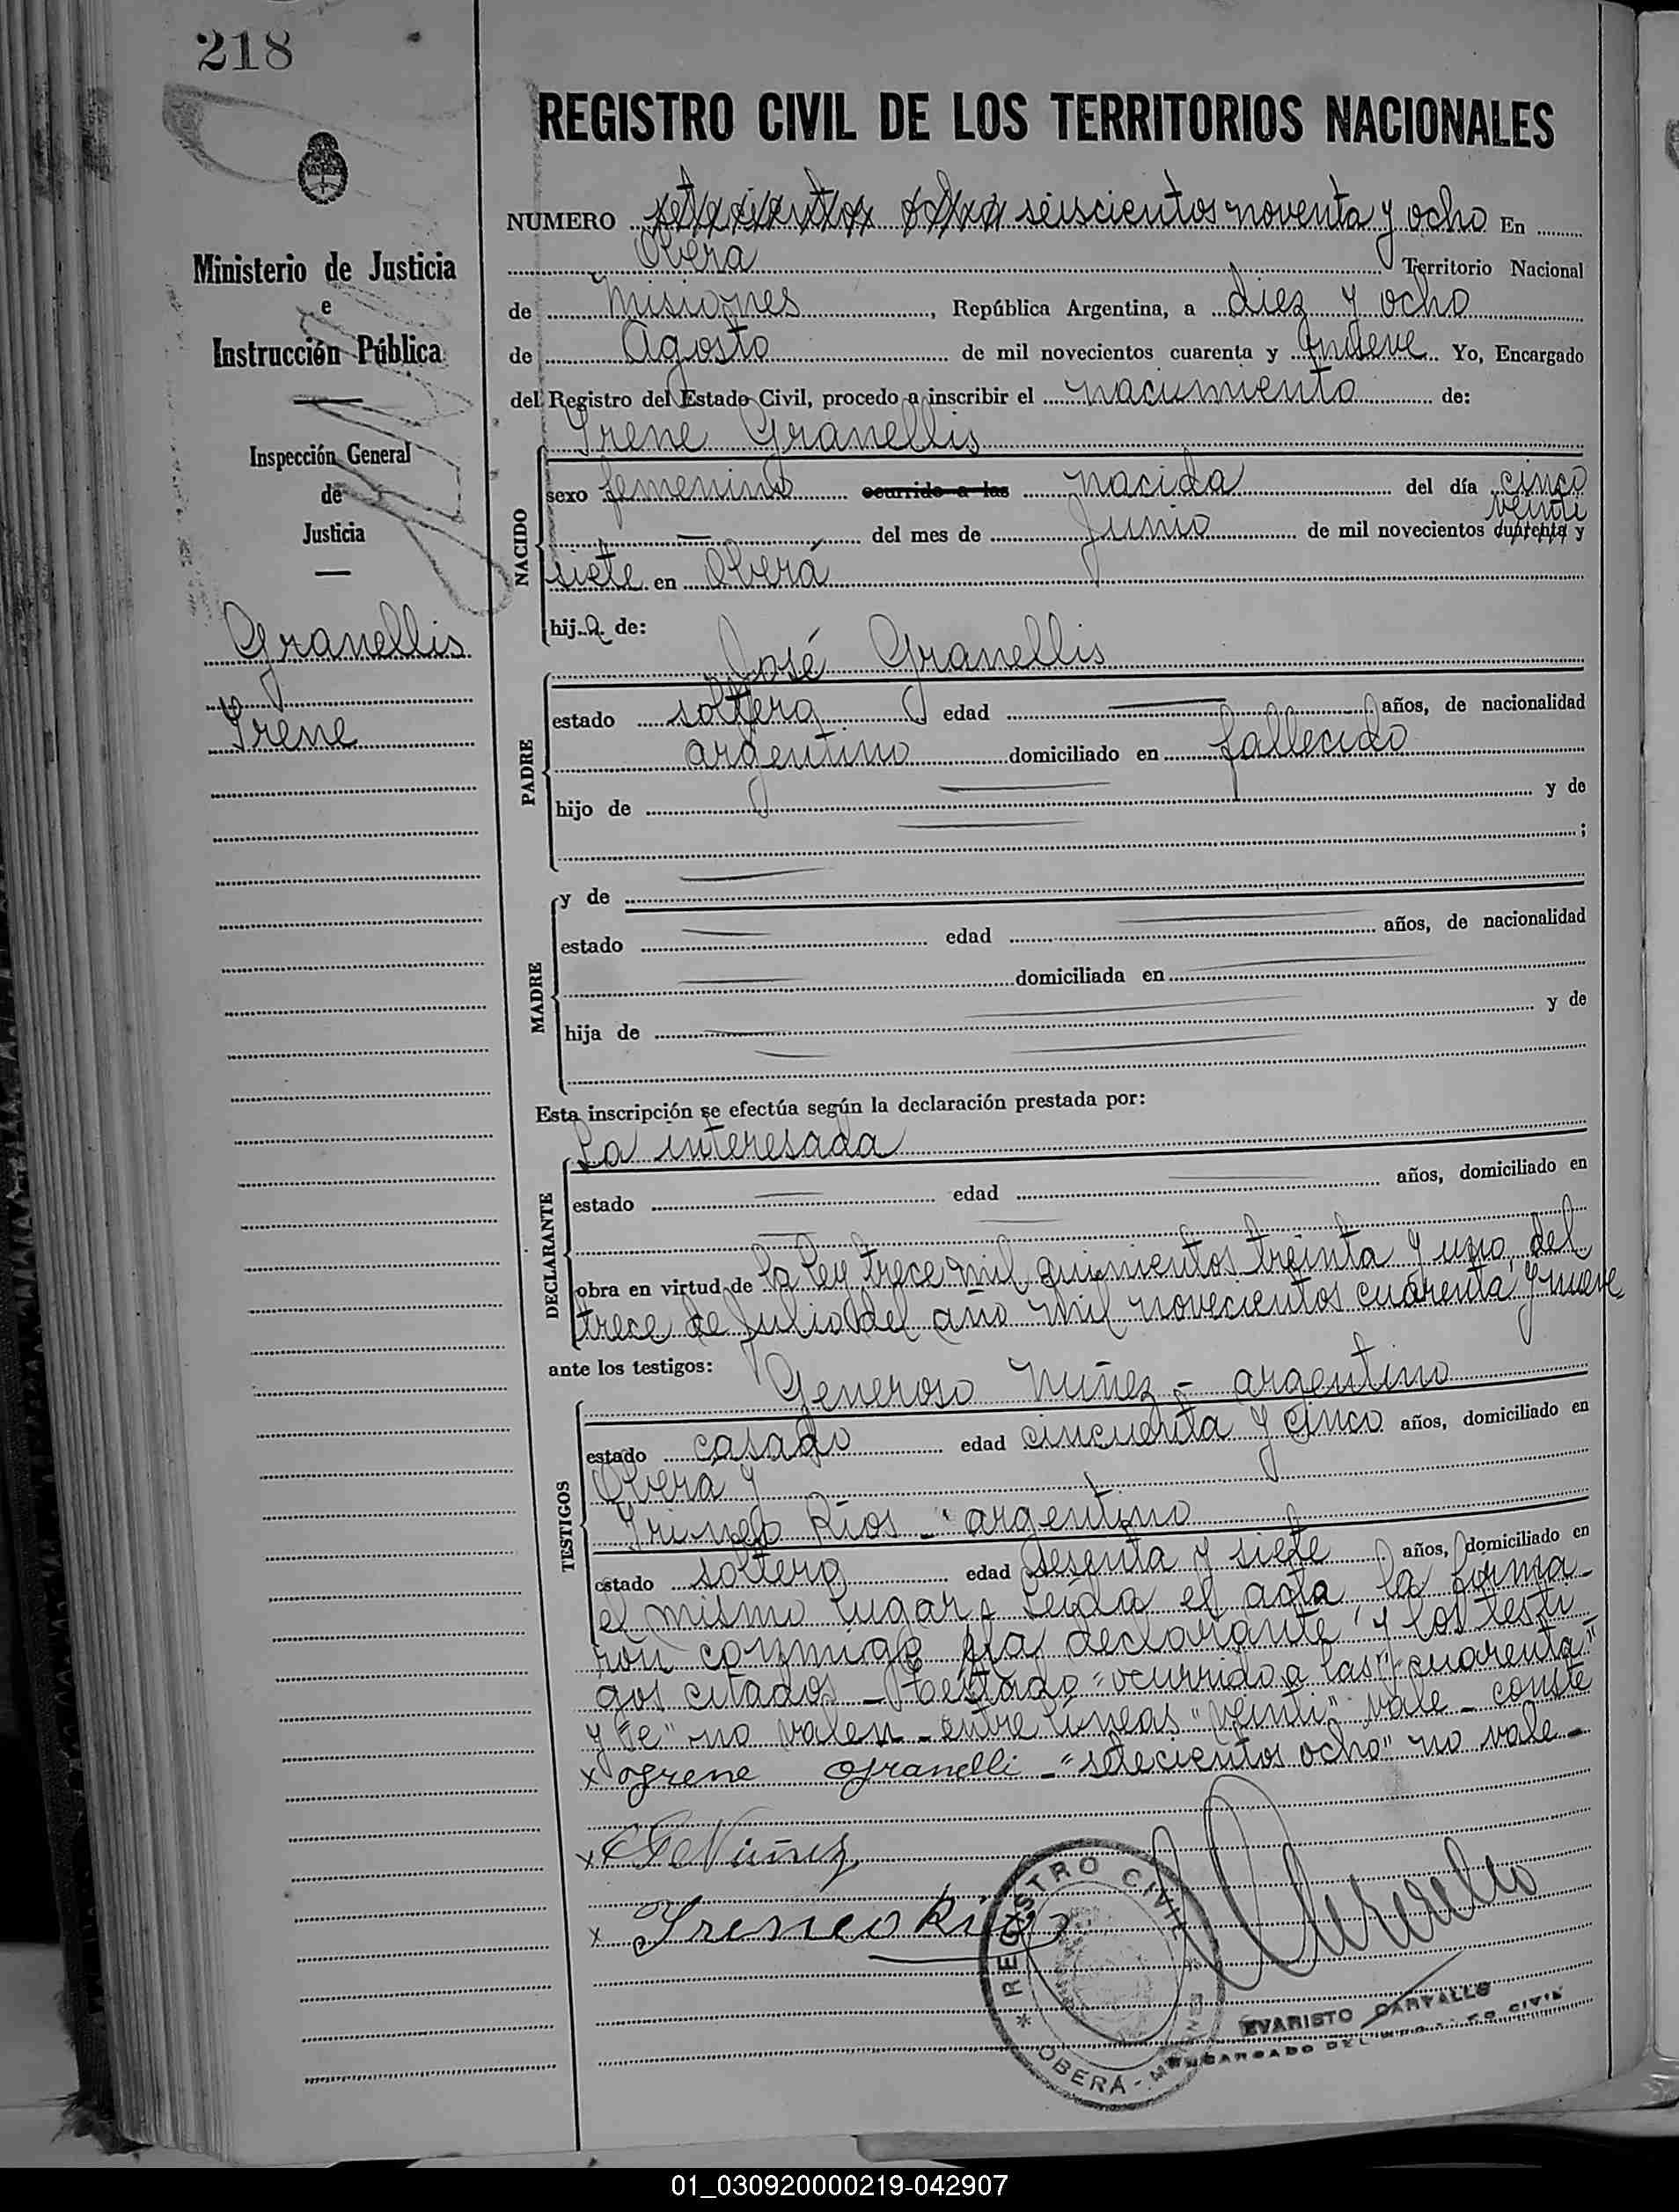 218
REGISTRO CIVIL DE LOS TERRITORIOS NACIONALES
NUMERO setecientos ocho seiscientos noventa y ocho En
Oberá
Territorio Nacional
de Misiones, República Argentina, a diez y ocho
de Agosto de mil novecientos cuarenta y nueve Yo, Encargado
del Registro del Estado Civil, procedo a inscribir el nacimiento de:
Irene Granellis
Ministerio de Justicia
e
Instrucción Pública
Inspección General
de
Justicia
Granellis
Irene
NACIDO
sexo femenino ocurrido a las nacida del día cinco
veinti
del mes de Junio de mil novecientos cuarenta y
siete en Oberá
hija de:
José Granellis
PADRE
estado soltero edad años, de nacionalidad
argentino domiciliado en fallecido
hijo de y de
;
MADRE
y de
estado edad años, de nacionalidad
domiciliada en
hija de y de
Esta inscripción se efectúa según la declaración prestada por:
La interesada
DECLARANTE
estado edad años, domiciliado en
obra en virtud de la ley trece mil quinientos treinta y uno del
trece de Julio del año mil novecientos cuarenta y nueve
ante los testigos:
TESTIGOS
Generoso Nuñez - argentino
estado casado edad cincuenta y cinco años, domiciliado en
Oberá y
Irineo Ríos - argentino
estado soltero edad sesenta y siete años, domiciliado en
el mismo lugar Leída el acta la forma-
ron conmigo la declarante y los testi
gos citados - Testado "ocurrido a las" "cuarenta"
y "e" no valen - entre lineas "veinti" vale - conste
x Irene Granelli - "setecientos ocho" no vale -
x G Nuñez
x Ireneo Rios
* REGISTRO CIVIL * OBERÁ - MISIONES
EVARISTO CARVALLO
ENCARGADO DEL REGISTRO CIVIL
01_030920000219-042907